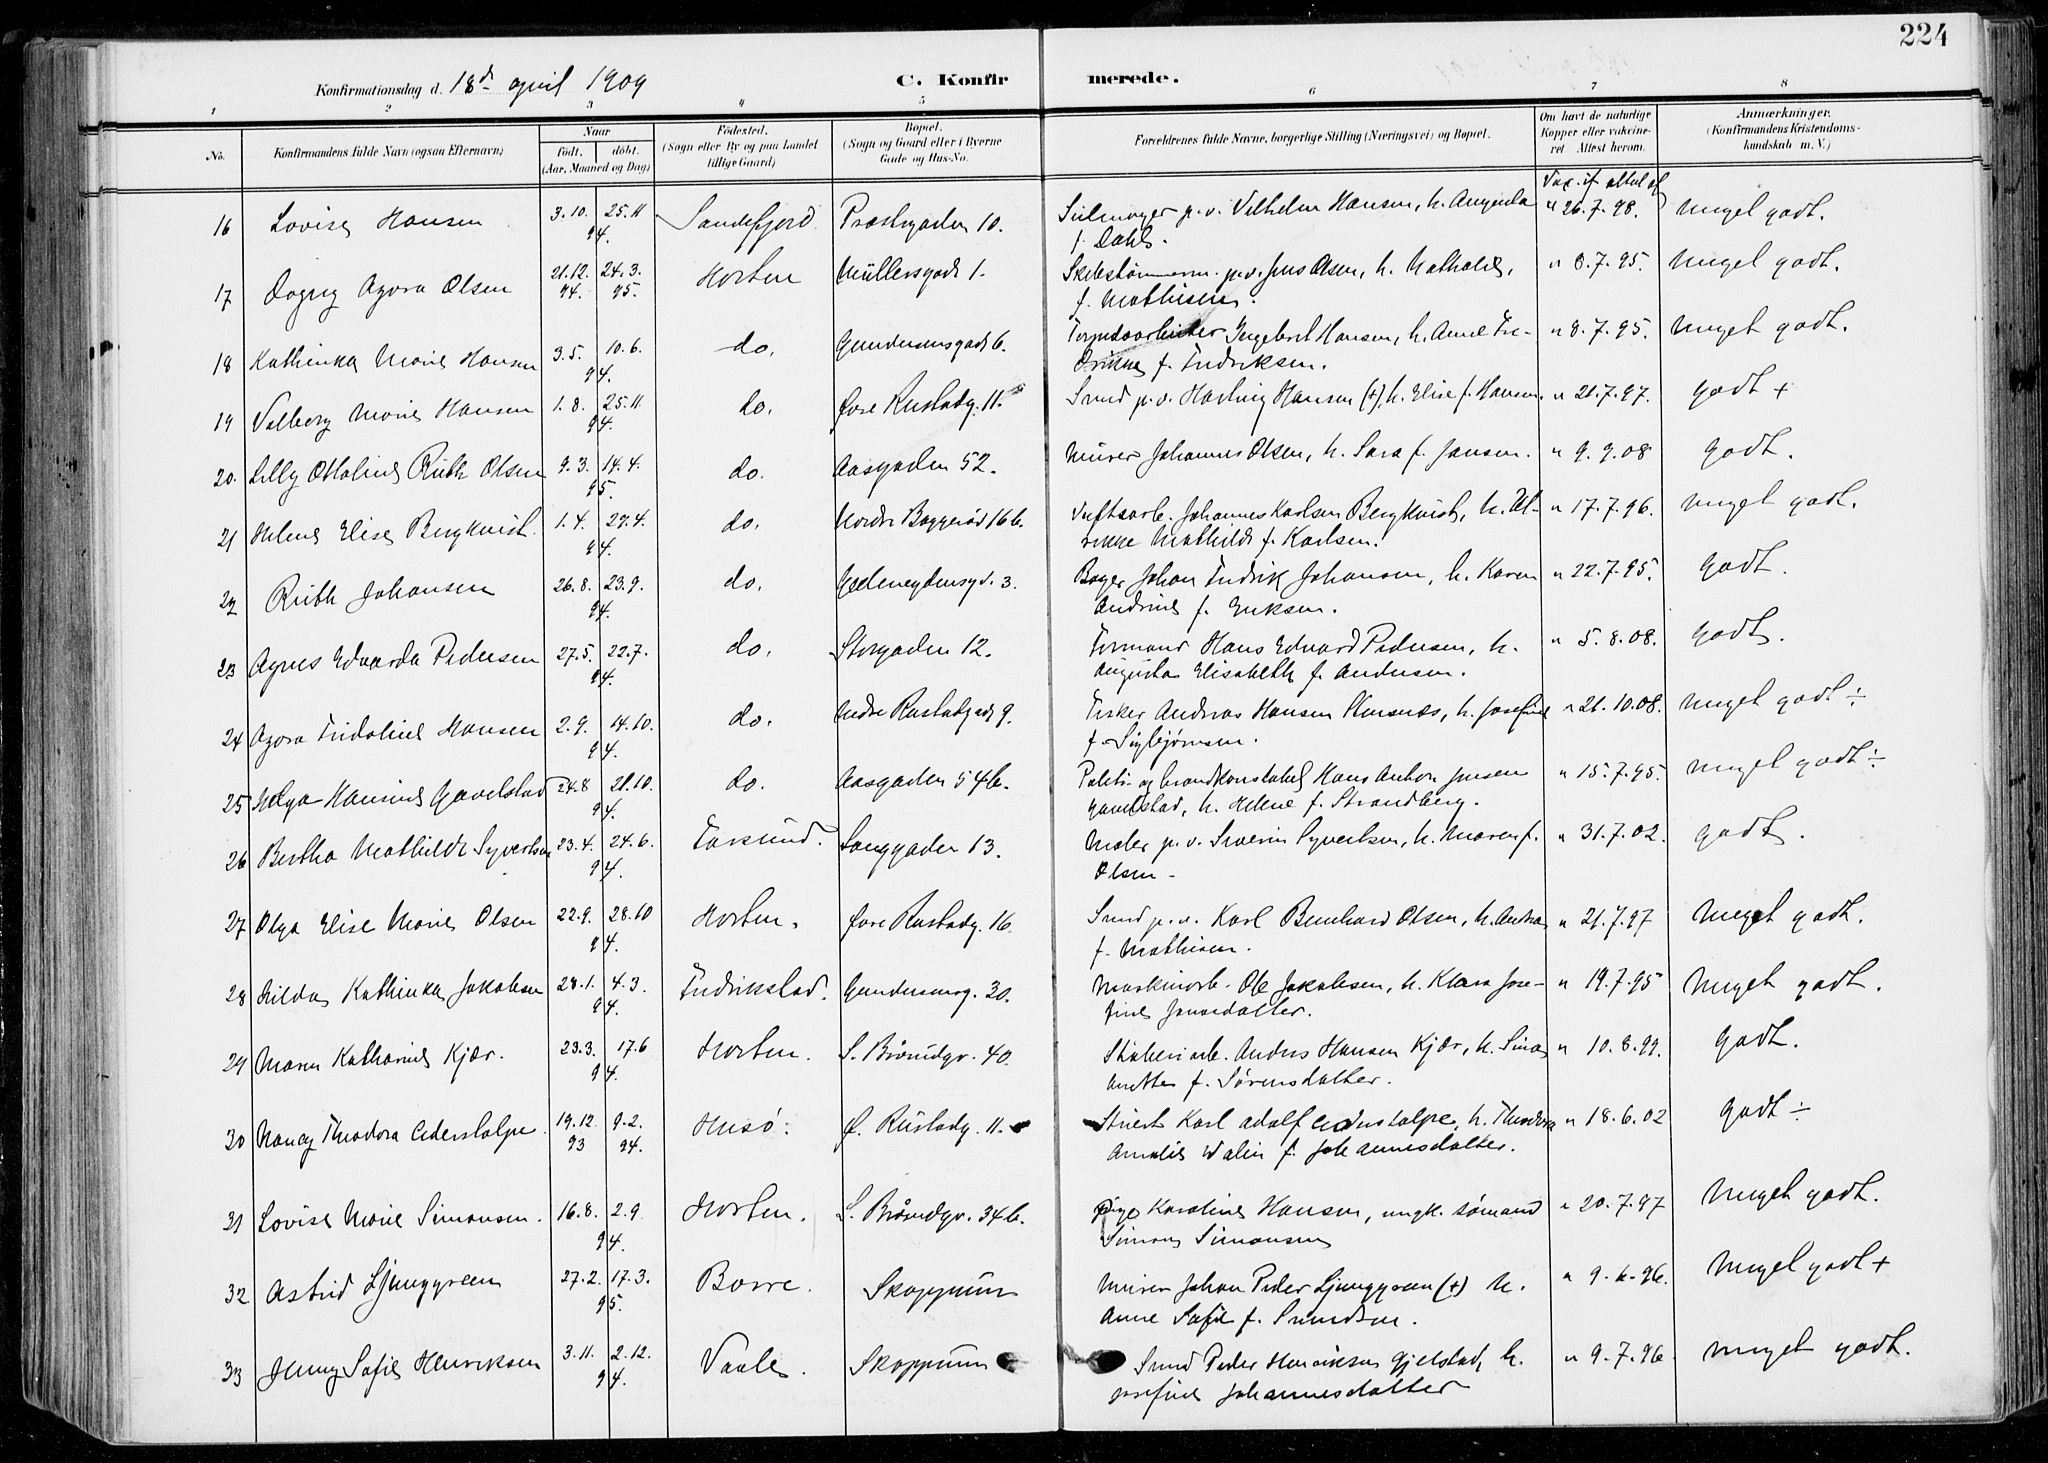 224
Konfirmationsdag d. 18de april 1909 C. Konfirmerede.
1 2 3 4 5 6 7 8
No. Konfirmandens fulde Navn (ogsaa Efternavn) Naar født. døbt. (Aar, Maaned og Dag) Fødested. (Sogn eller By og paa Landet tillige Gaard) Bopæl. (Sogn og Gaard eller i Byerne Gade og Hus-No. Forældrenes fulde Navne, borgerlige Stilling (Næringsvei) og Bopæl. Om havt de naturlige Kopper eller vakcineret. Attest herom. Anmærkninger. (Konfirmandens Kristendomskundskab m. V.)
Vac. if. attest af
16 Lovise Hansen 3.10. 25.11 Sandefjord. Præstegaden 10. p.v. Vilhelm Hansen, h. " 26.7.98. Meget godt.
94. f. Dahl.
17 Dagny Agora Olsen 21.12. 24.3. Horten Müllersgade 1. Skibstømmerm. p.v. Jens Olsen, h. Mathilde, " 8.7.95. Meget godt.
94. 95. f. Mathisen.
18 Kathinka Marie Hansen 3.5. 10.6. do. Gundersensgade 6. Torpedoarbeider Ingebret Hansen, h. Anne Fre- " 8.7.95. Meget godt.
94. drikke f. Fredriksen.
19 Valborg Marie Hansen 1.8. 25.11. do. Øvre Rustadg. 11. Smed p.v. Hartvig Hansen (+), h. Elise f. Hansen. " 21.7.97. Godt +
94.
20. Lilly Othaline Ruth Olsen 9.3. 14.4. do. Aasgaden 52. Murer Johannes Olsen, h. Sara f. Jansen. " 9.9.08 Godt.
95.
21 Helene Elise Bergkvist. 1.4. 27.4. do. Nordre Baggerød 16b. Verftsarb. Johannes Karlsen Bergkvist, h. Ul- " 17.7.96. Meget godt.
94. rikke Mathilde f. Karlsen.
22 Ruth Johansen 26.8. 23.9. do. 3. Bager Johan Fredrik Johansen, h. Karen " 22.7.95. Godt.
94. Andrine f. Eriksen.
23 Agnes Edvarda Pedersen 27.5. 22.7. do. Storgaden 12. Formand Hans Edvard Pedersen, h. " 5.8.08. Godt.
94. Augusta Elisabeth f. Andersen.
24 Agora Fridoline Hansen 2.9. 14.10. do. Nedre Rustadgade 9. Fisker Andreas Hansen h. Josefine " 21.10.08. Meget godt ÷
94. f. Sigbjørnsen.
25 Helga Hansine Gavelstad 24.8 21.10. do. Aasgaden 54b. Politi- og brandkonstabel Hans Anton Jensen " 15.7.95. Meget godt ÷
94. Gavelstad, h. Helene f. Strandberg.
26 Bertha Mathilde Syvertsen 23.4. 24.6. Farsund. Langgaden 13. Maler p.v. Severin Syvertsen, h. Maren f. " 31.7.02. Godt.
94. Olsen.
27 Olga Elise Marie Olsen 22.9. 28.10 Horten. Øvre Rustadg. 16. Smed p.v. Karl Bernhard Olsen, h. Andrea " 21.7.97 Meget godt.
94. f. Mathisen.
28 Hilda Kathinka Jakobsen 28.1. 4.3. Fredrikstad. Gundersensg. 30. Maskinarb. Ole Jakobsen, h. Klara Jose- " 19.7.95 Meget godt.
94. fine Jensdatter.
29 Maren Katharine Kjær. 23.3. 17.6 Horten. S. Bromsgv. 40. Støberiarb. Anders Hansen Kjær, h. Sina " 10.8.99. Godt.
94. Anette f. Sørensdatter.
30 Nancy Theodora Cederstolpe. 19.12. 9.2. Husø. Ø. Rustadg. 11. Stuert Karl Adolf Cederstolpe, h. Theodora " 18.6.02 Godt ÷
93 94. Amalie Walin f. Johannesdatter.
31 Lovise Marie Simonsen. 16.8. 2.9. Horten. 34b. Pige Karoline Hansen, ungk. sømand " 20.7.97 Meget godt.
94. Simon Simonsen
32 Astrid Ljunggreen 27.2. 17.3. Borre. Skoppum Murer Johan Peder Ljunggreen (+) h. " 9.6.96. Meget godt +
95. Anne Sofie f. Svendsen.
33 Jenny Sofie Henriksen 3.11. 2.12. Vaale. Skoppum Smed Peder Henriksen Gjelstad, h. " 9.7.96. Meget godt.
94. Josefine Johannesdatter